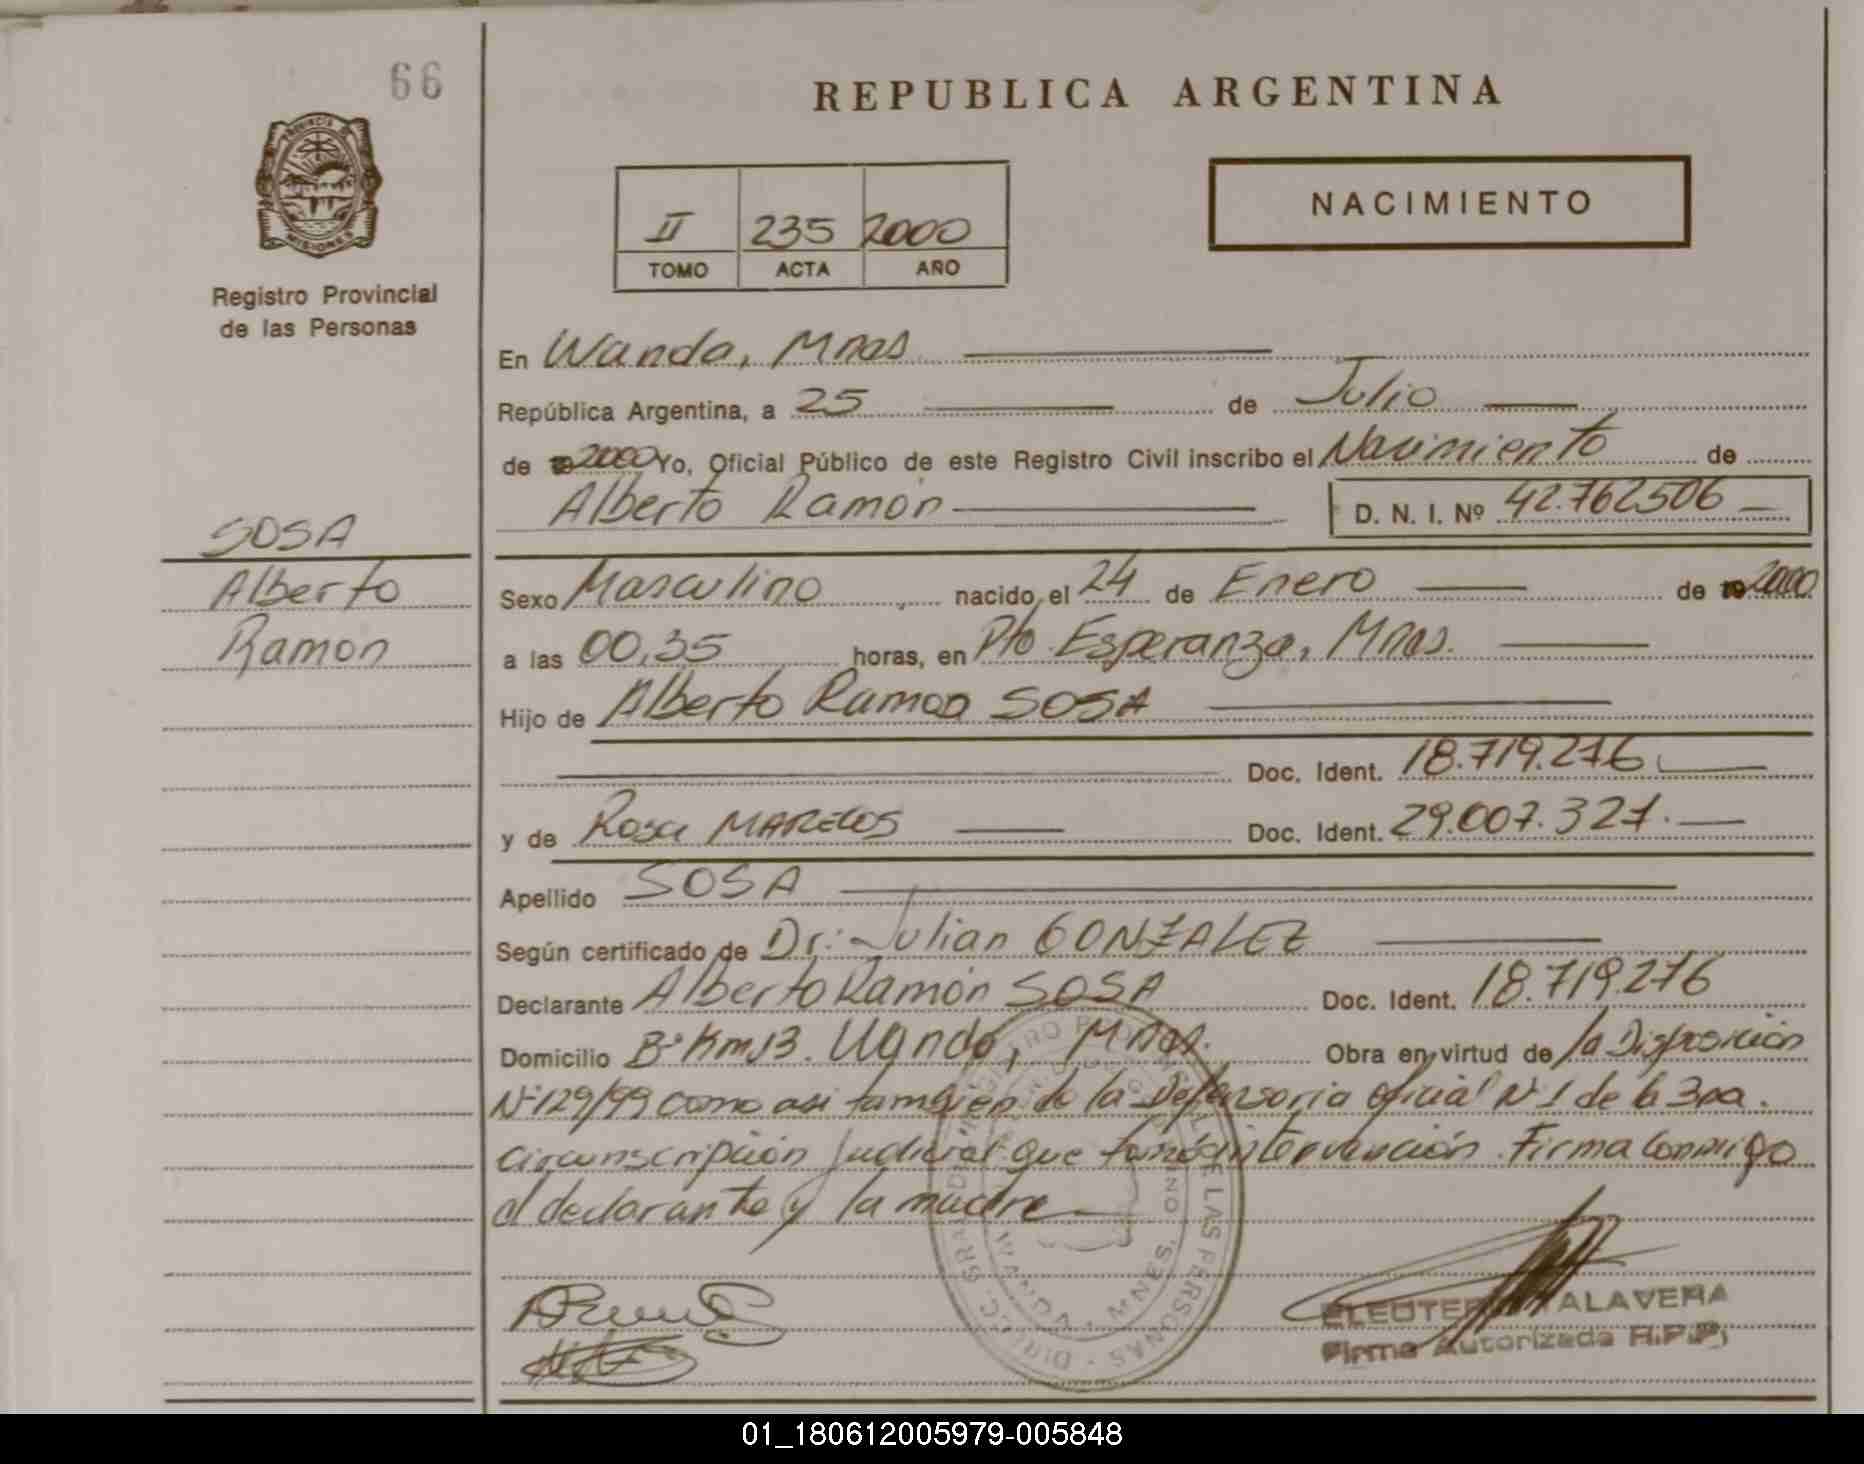 66
REPUBLICA ARGENTINA
PROVINCIA DE
MISIONES
Registro Provincial
de las Personas
II 235 2000
TOMO ACTA AÑO
NACIMIENTO
En Wanda, Mnes
República Argentina, a 25 de Julio
de 2000 Yo, Oficial Público de este Registro Civil inscribo el Nacimiento de
Alberto Ramón D. N. I. Nº 42.762506
SOSA
Alberto
Ramón
Sexo Masculino nacido el 24 de Enero de 2000
a las 00,35 horas, en Pto Esperanza, Mnes.
Hijo de Alberto Ramon SOSA
Doc. Ident. 18.719.276
y de Rosa Doc. Ident. 29.007.327.
Apellido SOSA
Según certificado de Dr: Julian GONZALEZ
Declarante Alberto Ramón SOSA Doc. Ident. 18.719276
Domicilio Bº Km 13. Wanda, Mnes. Obra en virtud de la Disposición
Nº 129/99 como asi también de la Defensoria oficial Nº 1 de la 3ra.
circunscripción Judicial que tomó intervención. Firma conmigo
el declarante y la madre
TALAVERA
Firma Autorizada R.P.P.
01_180612005979-005848